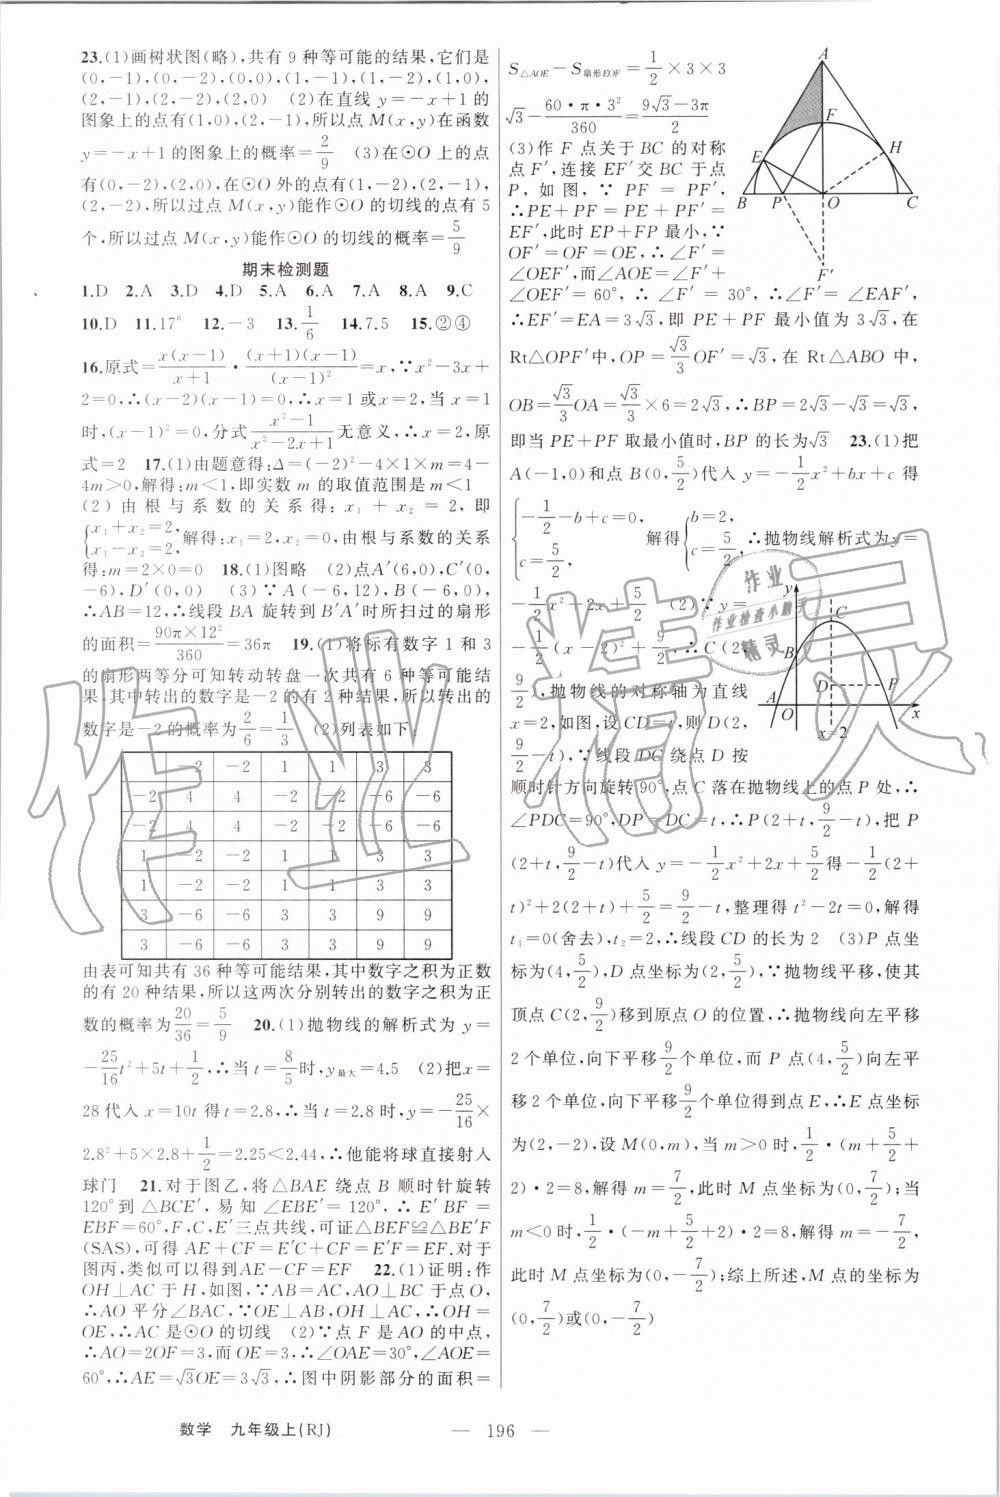 23.(1)画树状图(略),共有9种等可能的结果,它们是
(0,-1),(0,-2),(0,0),(1,-1),(1,-2),(1,0),
(2,-1),(2,-2),(2,0) (2)在直线y=-x+1的
图象上的点有(1,0),(2,-1),所以点M(x,y)在函数
y=-x+1的图象上的概率=2/9 (3)在⊙O上的点
有(0,-2),(2,0),在⊙O外的点有(1,-2),(2,-1),
(2,-2),所以过点M(x,y)能作⊙O的切线的点有5
个,所以过点M(x,y)能作⊙O的切线的概率=5/9
期末检测题
1.D 2.A 3.D 4.D 5.A 6.A 7.A 8.A 9.C
10.D 11.17° 12.-3 13.1/6 14.7.5 15.②④
16.原式=x(x-1)/(x+1)·(x+1)(x-1)/(x-1)²=x,∵x²-3x+
2=0,∴(x-2)(x-1)=0,∴x=1或x=2,当x=1
时,(x-1)²=0,分式(x²-1)/(x²-2x+1)无意义,∴x=2,原
式=2 17.(1)由题意得:Δ=(-2)²-4×1×m=4-
4m>0,解得:m<1,即实数m的取值范围是m<1
(2)由根与系数的关系得:x₁+x₂=2,即
{x₁+x₂=2, x₁-x₂=2, 解得:x₁=2,x₂=0,由根与系数的关系
得:m=2×0=0 18.(1)图略 (2)点A′(6,0),C′(0,
-6),D′(0,0) (3)∵A(-6,12),B(-6,0),
∴AB=12,∴线段BA旋转到B′A′时所扫过的扇形
的面积=90π×12²/360=36π 19.(1)将标有数字1和3
的扇形两等分可知转动转盘一次共有6种等可能结
果,其中转出的数字是-2的有2种结果,所以转出的
数字是-2的概率为2/6=1/3 (2)列表如下:
-2 -2 1 1 3 3
-2 4 4 -2 -2 -6 -6
-2 4 4 -2 -2 -6 -6
1 -2 -2 1 1 3 3
1 -2 -2 1 1 3 3
3 -6 -6 3 3 9 9
3 -6 -6 3 3 9 9
由表可知共有36种等可能结果,其中数字之积为正数
的有20种结果,所以这两次分别转出的数字之积为正
数的概率为20/36=5/9 20.(1)抛物线的解析式为y=
-25/16t²+5t+1/2,∴当t=8/5时,y最大=4.5 (2)把x=
28代入x=10t得t=2.8,∴当t=2.8时,y=-25/16×
2.8²+5×2.8+1/2=2.25<2.44,∴他能将球直接射入
球门 21.对于图乙,将△BAE绕点B顺时针旋转
120°到△BCE′,易知∠EBE′=120°,∴E′BF=
EBF=60°,F,C,E′三点共线,可证△BEF≌△BE′F
(SAS),可得AE+CF=E′C+CF=E′F=EF.对于
图丙,类似可以得出AE-CF=EF 22.(1)证明:作
OH⊥AC于H,如图,∵AB=AC,AO⊥BC于点O,
∴AO平分∠BAC,∵OE⊥AB,OH⊥AC,∴OH=
OE,∴AC是⊙O的切线 (2)∵点F是AO的中点,
∴AO=2OF=3,而OE=3,∴∠OAE=30°,∠AOE=
60°,∴AE=√3OE=3√3,∴图中阴影部分的面积=
S△AOE-S扇形EOF=1/2×3×3
√3-60·π·3²/360=(9√3-3π)/2
(3)作F点关于BC的对称
点F′,连接EF′交BC于点
P,如图,∵PF=PF′,
∴PE+PF=PE+PF′=
EF′,此时EP+FP最小,∵
OF′=OF=OE,∴∠F′=
∠OEF′,而∠AOE=∠F′+
∠OEF′=60°,∴∠F′=30°,∴∠F′=∠EAF′,
∴EF′=EA=3√3,即PE+PF最小值为3√3,在
Rt△OPF′中,OP=√3/3OF′=√3,在Rt△ABO中,
OB=√3/3OA=√3/3×6=2√3,∴BP=2√3-√3=√3,
即当PE+PF取最小值时,BP的长为√3 23.(1)把
A(-1,0)和点B(0,5/2)代入y=-1/2x²+bx+c得
{-1/2-b+c=0, c=5/2, 解得{b=2, c=5/2, ∴抛物线解析式为y=
-1/2x²+2x+5/2 (2)∵y=
-1/2(x-2)²+9/2,∴C(2,
9/2),抛物线的对称轴为直线
x=2,如图,设CD=t,则D(2,
9/2-t),∵线段DC绕点D按
顺时针方向旋转90°,点C落在抛物线上的点P处,∴
∠PDC=90°,DP=DC=t,∴P(2+t,9/2-t),把P
(2+t,9/2-t)代入y=-1/2x²+2x+5/2得-1/2(2+
t)²+2(2+t)+5/2=9/2-t,整理得t²-2t=0,解得
t₁=0(舍去),t₂=2,∴线段CD的长为2 (3)P点坐
标为(4,5/2),D点坐标为(2,5/2),∵抛物线平移,使其
顶点C(2,9/2)移到原点O的位置,∴抛物线向左平移
2个单位,向下平移9/2个单位,而P点(4,5/2)向左平
移2个单位,向下平移9/2个单位得到点E,∴E点坐标
为(2,-2),设M(0,m),当m>0时,1/2·(m+5/2+
2)·2=8,解得m=7/2,此时M点坐标为(0,7/2);当
m<0时,1/2·(-m+5/2+2)·2=8,解得m=-7/2,
此时M点坐标为(0,-7/2);综上所述,M点的坐标为
(0,7/2)或(0,-7/2)
A
F
E
H
B P O C
F′
y
C
B
D P
A O x
x=2
作业
作业检查小助手
精灵
作业精灵
数学 九年级上(RJ)
— 196 —